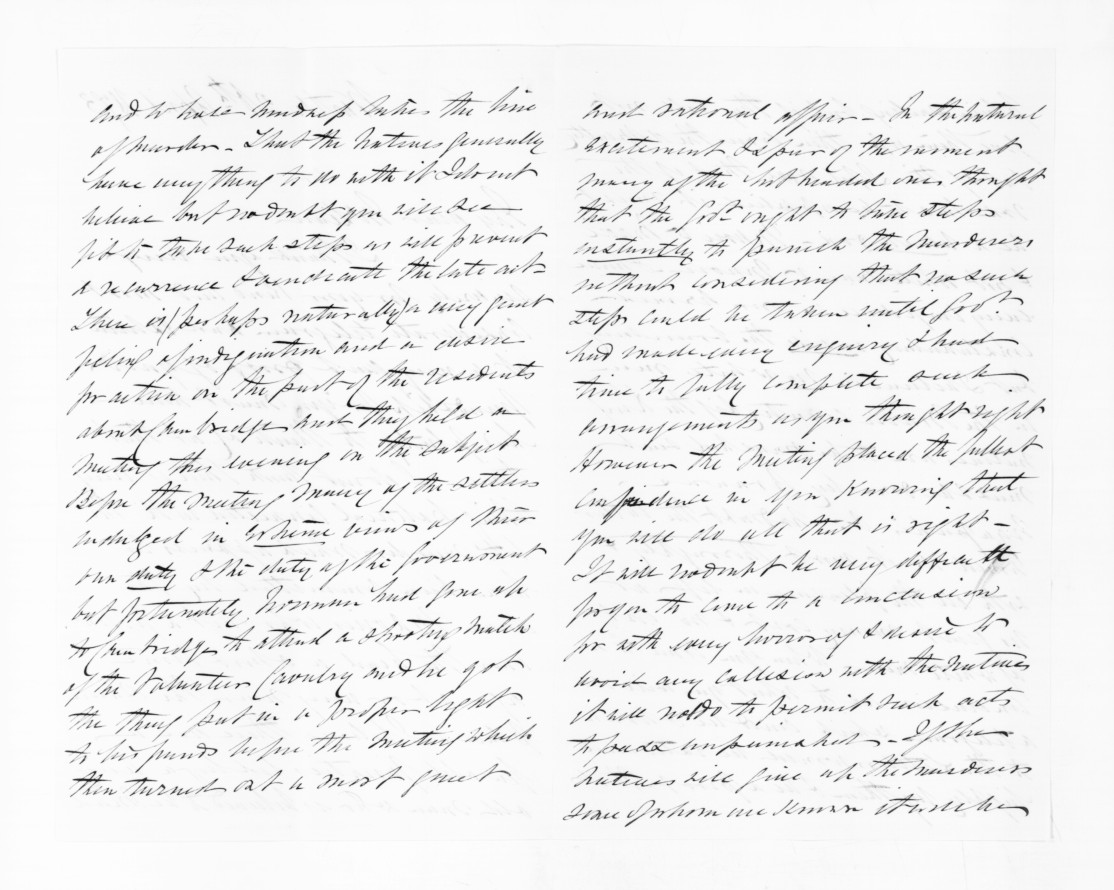 and whose madness takes the line
of murder - That the Natives generally
have anything to do with it I do not
believe but no doubt you will see
fit to take such steps as will prevent
a recurrence & vindicate the late act -
There is (perhaps naturally) a very great
feeling of indignation and a desire
for action on the part of the residents
about Cambridge and they held a
meeting this evening on the subject
Before the meeting many of the settlers
indulged in extreme views of their
own duty & the duty of the Government
but fortunately Norman had gone up
to Cambridge to attend a shooting match
of the Volunteer Cavalry and he got
the thing put in a proper light
to his friends before the meeting which
then turned out a most quiet
and rational affair - In the natural
excitement & spur of the moment
many of the hot headed ones thought
that the Govt ought to take steps
instantly to punish the murderers
without considering that no such
steps could be taken until Govt
had made every enquiry & had
time to fully complete such
arrangements as you thought right
However the meeting placed the fullest
confidence in you knowing that
you will do all that is right -
It will no doubt be very difficult
for you to come to a conclusion
for with every horror of & desire to
avoid any collision with the Natives
it will not do to permit such acts
to pass unpunished - If the
Natives will give up the murderers
some of whom are known it will be